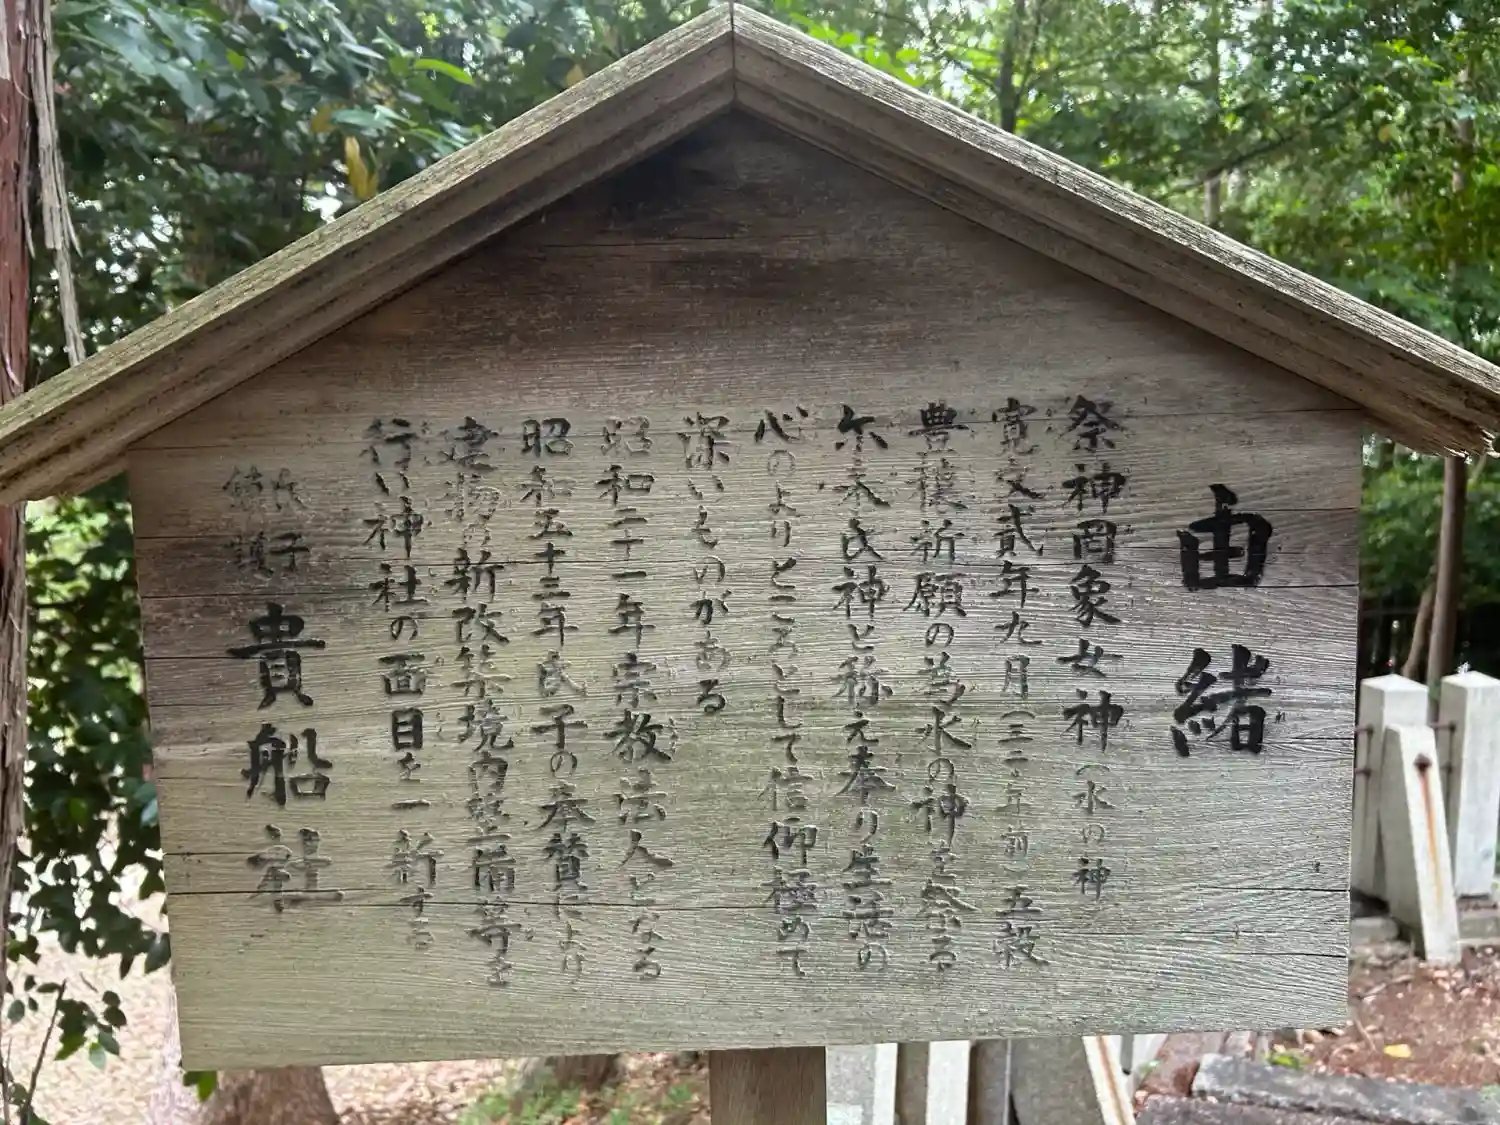 由緒
祭神罔象女神（水の神）
寛文貳年九月（三二〇年前）五穀
豊穣祈願の為水の神を祭る
尓来氏神と称え奉り生活の
心のよりどころとして信仰極めて
深いものがある
昭和二十一年宗教法人となる
昭和五十三年氏子の奉賛により
建物の新改築境内整備等を
行い神社の面目を一新する
氏子
鎮護
貴船社